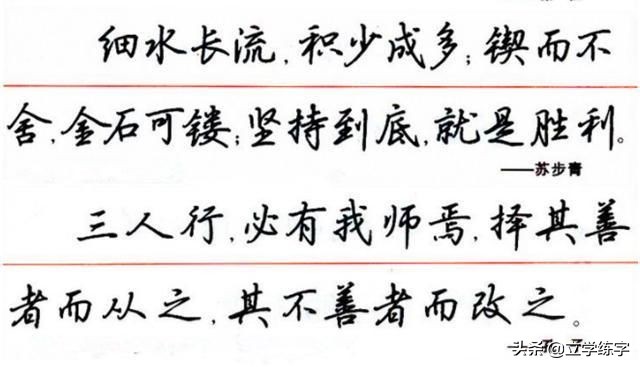 细水长流，积少成多；锲而不
舍，金石可镂；坚持到底，就是胜利。
——苏步青
三人行，必有我师焉，择其善
者而从之，其不善者而改之。
头条@立学练字